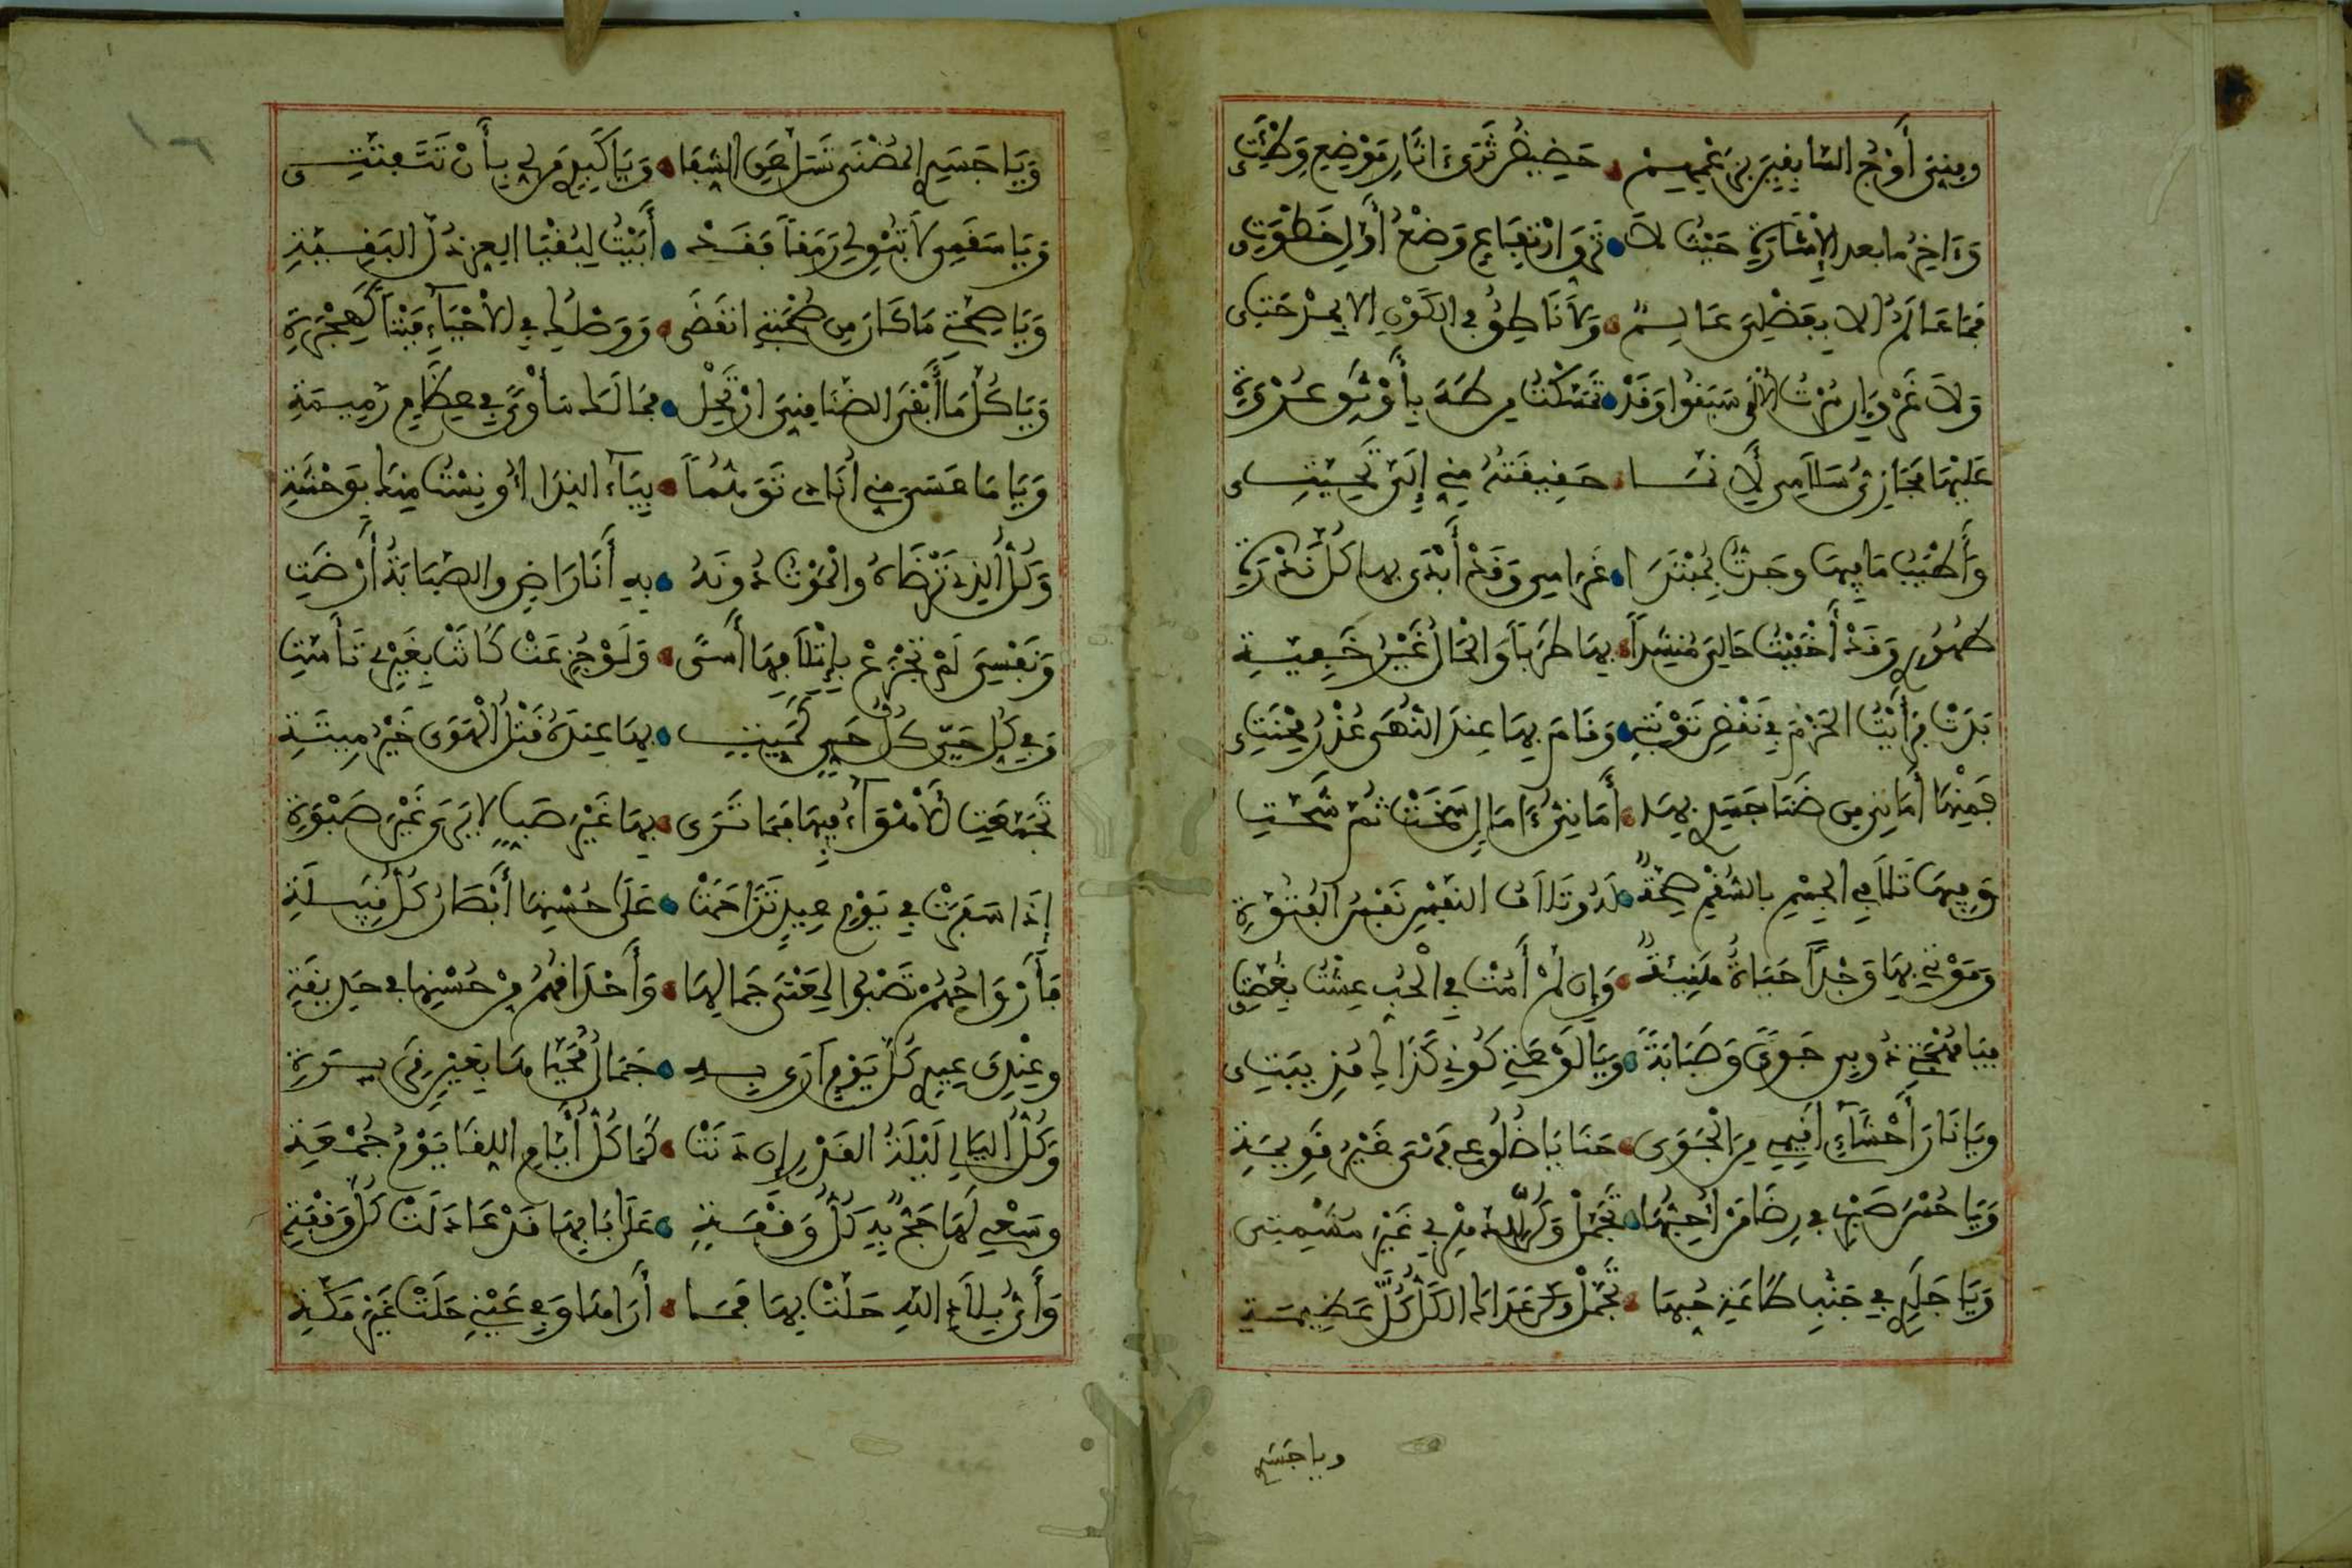 ومني أوج السابقين بزعمهم • حضيض ثرى ءاثار موضع وطئتي
وءاخر ما بعد الإشارة حيث لا • ترق ارتفاع وضع أول خطوتي
فما عالم إلا بفضلي عالم • ولا ناطق في الكون إلا بمدحتي
ولا غرو إن سدت الألى سبقوا وقد • تمسكت من طه بأوثق عروة
عليها مجازي سلامي فإنما • حقيقته مني إلي تحيتي
وأطيب ما فيها وجدت بمبتدا • غرامي وقد أبدى بها كل ندرة
ظهوري وقد أخفيت حالي منشدا • بها طربا والحال غير خفية
بدت فرأيت الحزم في نقض توبتي • وقام بها عند النهى عذر محنتي
فمنها أماني من ضنا جسدي بها • أماني ءامال سخت ثم شحت
وفيها تلافي الجسم بالسقم صحة • له وتلاف النفس نفس الفتوة
وموتي بها وجدا حياة هنيئة • وإن لم أمت في الحب عشت بغصتي
فيا مهجتي ذوبي جوى وصبابة • ويا لوعتي كوني كذاك مذيبتي
ويا نار أحشاءي أقيمي من الجوى • حنايا ضلوعي فهي غير قويمة
ويا حسن صبري في رضا من أحبها • تجمل وكن للدهر بي غير مشمتي
ويا جلدي في جنب طاعة حبها • تحمل عداك الكل كل عظيمة
ويا جسدي
ويا جسدي المضنى تسل عن الشفا • ويا كبدي من لي بأن تتفتتي
ويا سقمي لا تبق لي رمقا فقد • أبيت لبقيا العز ذل البقية
ويا صحتي ما كان من صحبتي انقضى • ووصلك في الأحياء ميتا كهجرة
ويا كل ما أبقى الضنا مني ارتحل • فما لك مأوى في عظام رميمة
ويا ما عسى مني أناجي توهما • بياء الندا أونست منك بوحشة
وكل الذي ترضاه والموت دونه • به أنا راض والصبابة أرضت
ونفسي لم تجزع بإتلافها أسى • ولو جزعت كانت بغيري تأست
وفي كل حي كل حي كميت • بها عنده قتل الهوى خير ميتة
تجمعت الأهواء فيها فما ترى • بها غير صب لا يرى غير صبوة
إذا سفرت في يوم عيد تزاحمت • على حسنها أبصار كل قبيلة
فأرواحهم تصبو لمعنى جمالها • وأحداقهم من حسنها في حديقة
وعندي عيدي كل يوم أرى به • جمال محياها بعين قريرة
وكل الليالي ليلة القدر إن دنت • كما كل أيام اللقا يوم جمعة
وسعي لها حج به كل وقفة • على بابها قد عادلت كل وقفة
وأي بلاد الله حلت بها فما • أراها وفي عيني حلت غير مكة